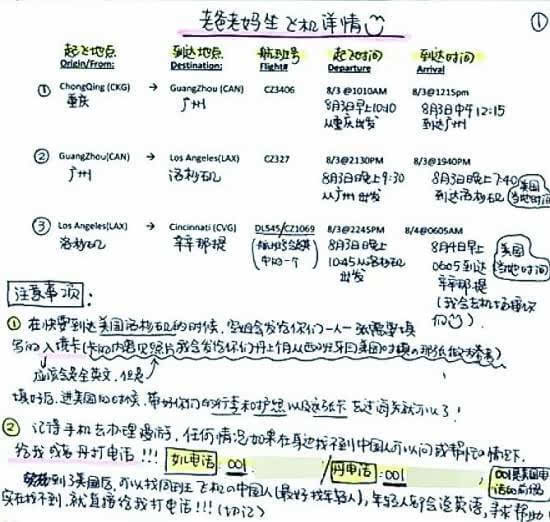 老爸老妈坐飞机详情 ①
起飞地点 到达地点 航班号 起飞时间 到达时间
Origin/From: Destination: Flight# Departure Arrival
① ChongQing (CKG) → GuangZhou (CAN) CZ3406 8/3 @1010AM 8/3@1215pm
重庆 广州 8月3日早上10:10 8月3日中午12:15
从重庆出发 到达广州
② GuangZhou(CAN) → Los Angeles(LAX) CZ327 8/3@2130PM 8/3@1940PM
广州 洛杉矶 8月3日晚上9:30 8月3日晚上7:40 美国
从广州出发 到达洛杉矶 当地时间
③ Los Angeles(LAX) → Cincinnati (CVG) DL545/CZ1069 8/3@2245PM 8/4@0605AM
洛杉矶 辛辛那提 8月3日晚上 8月4日早上 美国
中的一个 10:45从洛杉矶 0605到达 当地时间
出发 辛辛那提
(我会去机场接你
们)
注意事项:
① 在快要到达美国洛杉矶的时候, 空姐会发给你们一人一张需要填
写的入境卡(卡的内容见照片我会发给你们丹上个月从西班牙回美国时填的那张做参考)
应该会是全英文, 但是
填好后, 进美国的时候, 带好你们的行李和护照以及这张卡去过海关就可以了!
② 记得手机去办理漫游, 任何情况如果在身边找不到中国人可以问或帮忙的情况下,
给我或者丹打电话!!! 电话: 001 丹电话: 001 001是美国电
到了美国后, 可以找同班飞机的中国人(最好找年轻人), 年轻人都会说英语, 寻求帮助!
实在找不到, 就直接给我打电话!!! (切记)